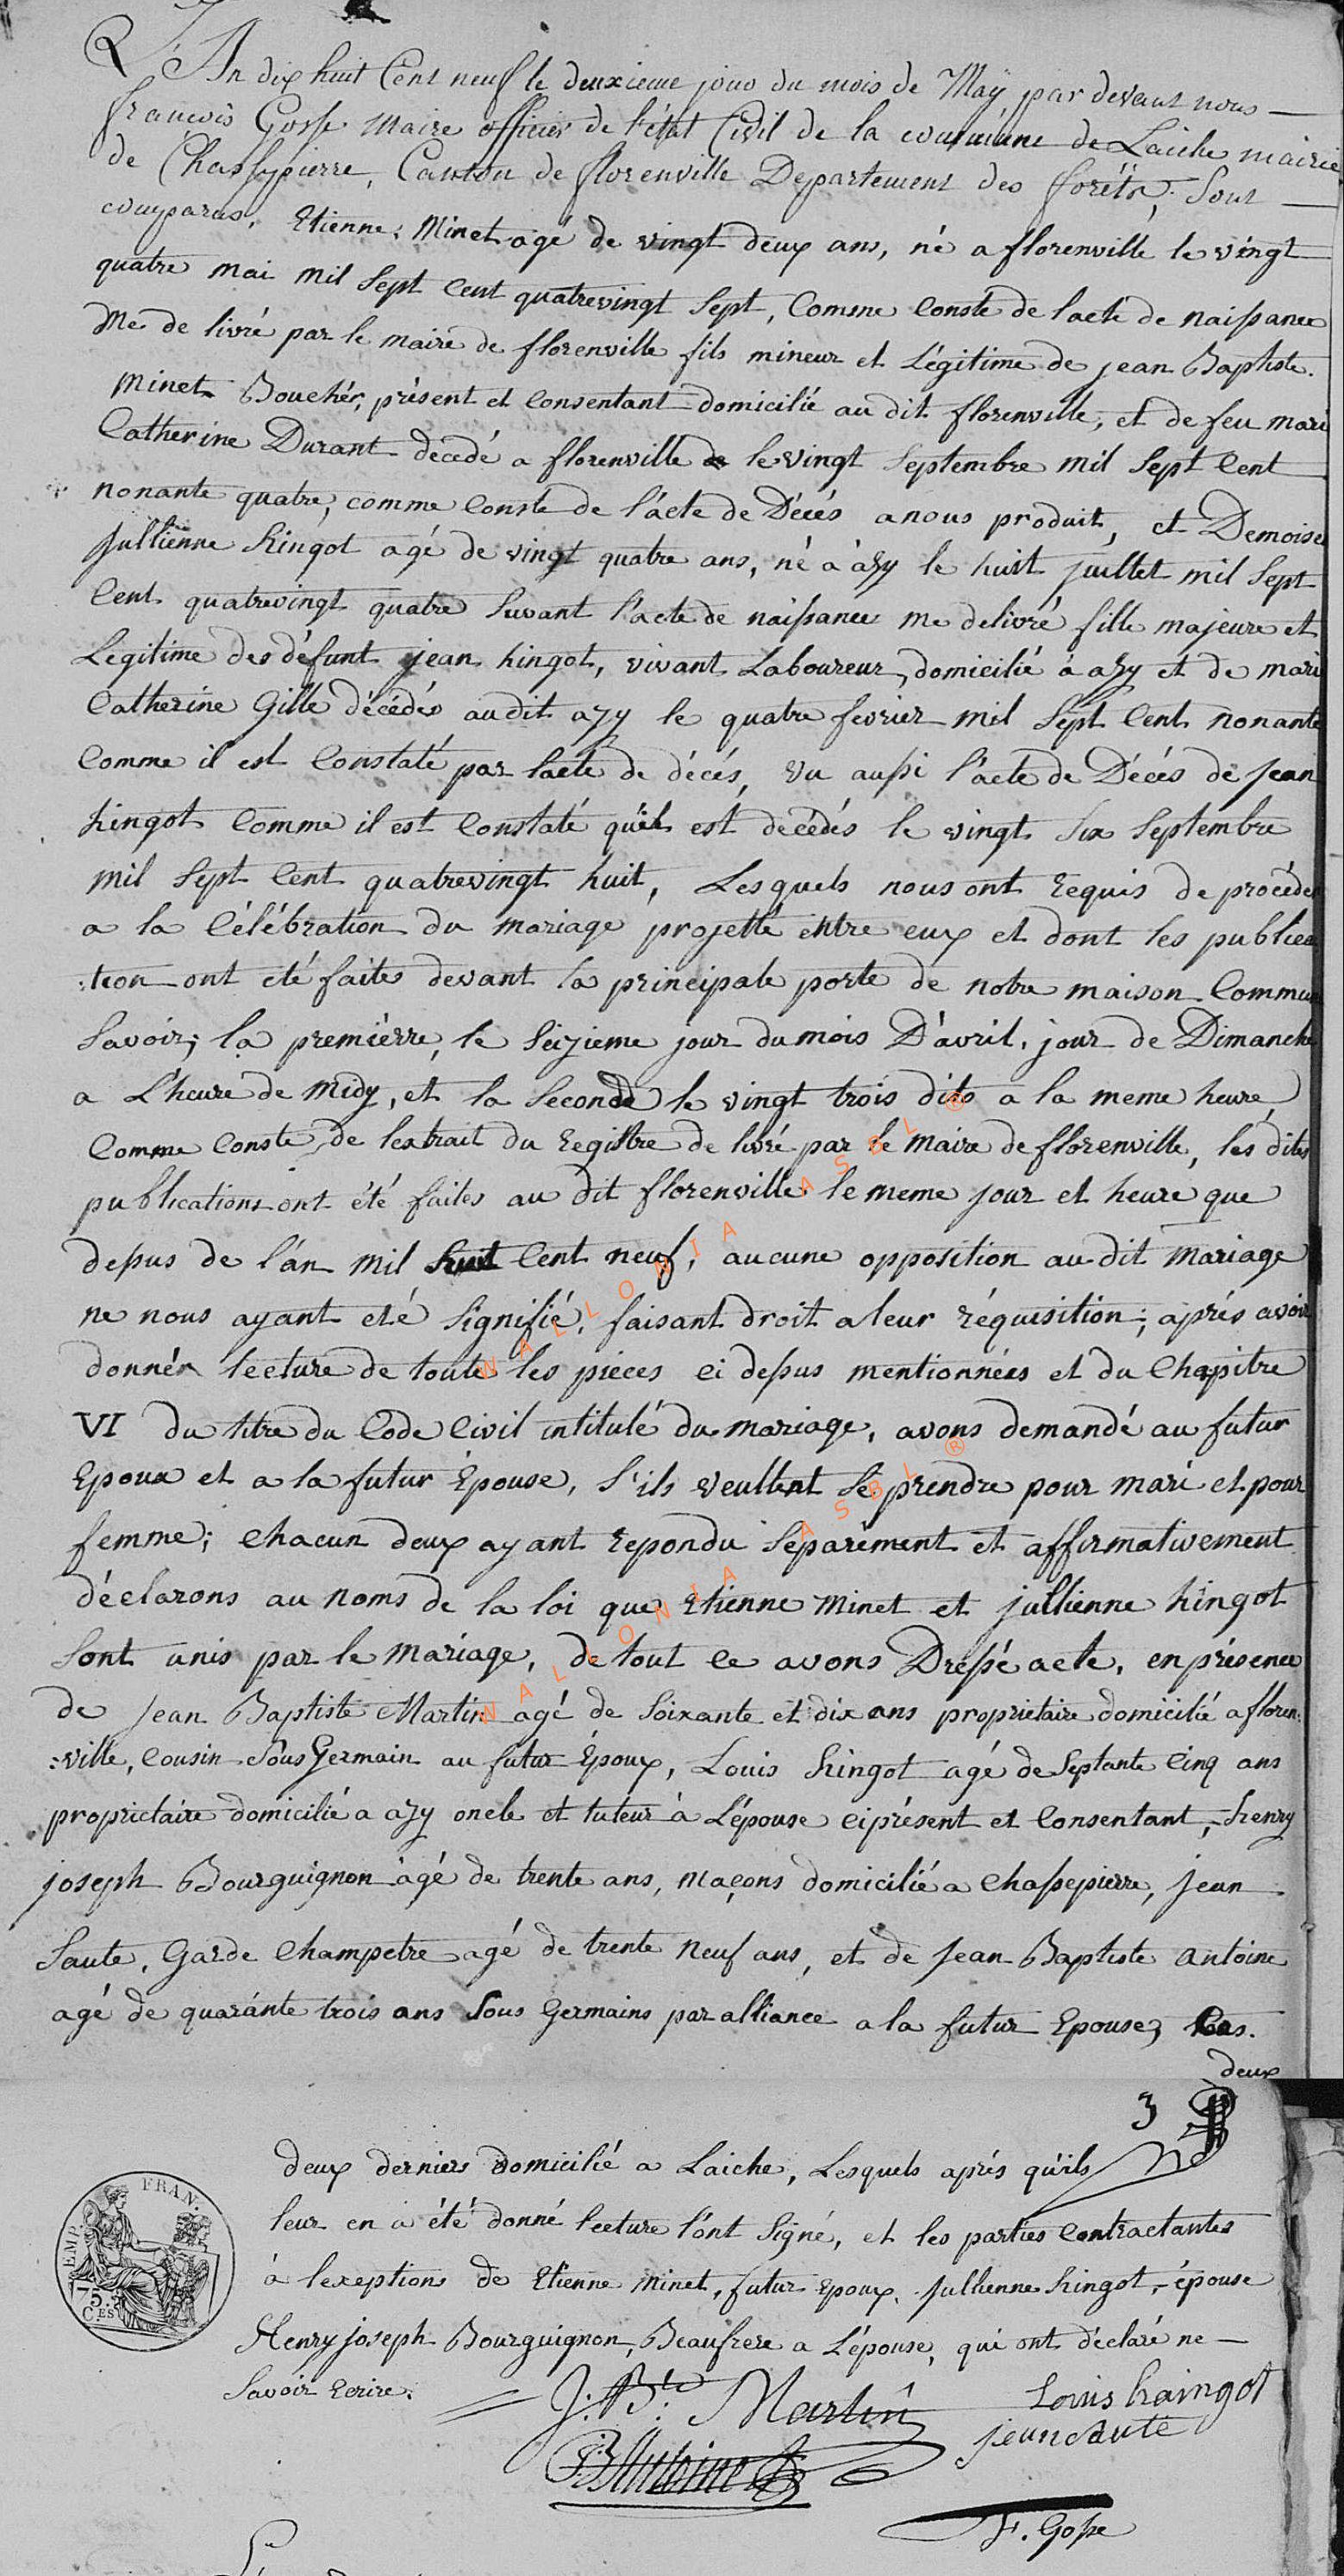 L'An dix huit Cent neuf le deuxieme jour du mois de Maÿ, par devant nous
françois Gosse Maire officier de l'état Civil de la commune de Laiche mairie
de Chassepierre, Canton de florenville Departement des forêts, Sont
comparus, Etienne Minet agé de vingt deux ans, né a florenville le vingt
quatre mai mil Sept Cent quatrevingt Sept, Comme Conste de l'acte de naissance
Me de livré par le maire de florenville fils mineur et Légitime de jean Baptiste
Minet Bouchér, présent et Consentant domicilié au dit florenville, et de feu mari
Catherine Durant decédé a florenville le vingt Septembre mil Sept Cent
nonante quatre, comme Conste de l'acte de Décés a nous produit, et Demoise
Jullienne hingot agé de vingt quatre ans, né à àzy le huit juillet mil Sept
Cent quatrevingt quatre Suvant l'acte de naissance me delivré fille majeure et
Legitime des défunt jean hingot, vivant Laboureur domicilié à azy et de mari
Catherine Gille décédés audit azy le quatre fevrier mil Sept Cent nonante
Comme il est Constaté par l'acte de décés, vu aussi l'acte de Décés de Jean
hingot Comme il est Constaté qu'il est decédés le vingt Six Septembre
mil Sept Cent quatrevingt huit, Lesquels nous ont Requis de procéder
a la Célébration du mariage projetté entre eux et dont les publica
:tion ont été faites devant la principale porte de notre maison Commu
Savoir; la premièrre, le Seizieme jour du mois D'avril, jour de Dimanche
a L'heure de Midy, et la Seconde le vingt trois dito a la meme heure
Comme Conste de l'extrait du Registre de livré par le Maire de florenville, les dites
publications ont été faites au dit florenville le meme jour et heure que
dessus de l'an mil huit Cent neuf, aucune opposition au dit Mariage
ne nous ayant eté Signifié, faisant droit a leur réquisition; aprés avoir
donnér lecture de toute les pieces ci dessus mentionnées et du Chapitre
VI du titre du Code Civil intitulé du mariage, avons demandé au futur
Epoux et a la futur Epouse, S'ils veullent Se prendre pour mari et pour
femme; Chacun deux ayant Repondu Séparément et affirmativement
déclarons au noms de la loi que Etienne Minet et jullienne hingot
Sont unis par le Mariage, de tout Ce avons Dressé acte, en présence
de Jean Baptiste Martin agé de Soixante et dix ans proprietaire domicilié a floren:
:ville, Cousin Sous Germain au futur Epoux, Louis hingot agé de Septante Cinq ans
proprietaire domicilié a azy oncle et tuteur à L'épouse ci présent et Consentant, henry
joseph Bourguignon àgé de trente ans, Maçons domicilié a Chassepierre, jean
Saute, Garde Champetre agé de trente neuf ans, et de Jean Baptiste antoine
agé de quarante trois ans Sous Germains par alliance a la futur Epouse, Les
deux
3
deux derniers domicilié a Laiche, Lesquels aprés qu'ils
leur en a été donné lecture l'ont Signé, et les parties Contractantes
à lexeptions de Etienne minet, futur Epoux, Jullienne hingot, épouse
Henry joseph Bourguignon, Beaufrere a L'épouse, qui ont déclaré ne
Savoir Ecrire.
J: Bte Martin
Louis haingot
jean Saute
JB Antoine
F. Gosse
TIMB. FRAN.
75.
C.ES
WALLONIA ASBL ®
WALLONIA ASBL ®